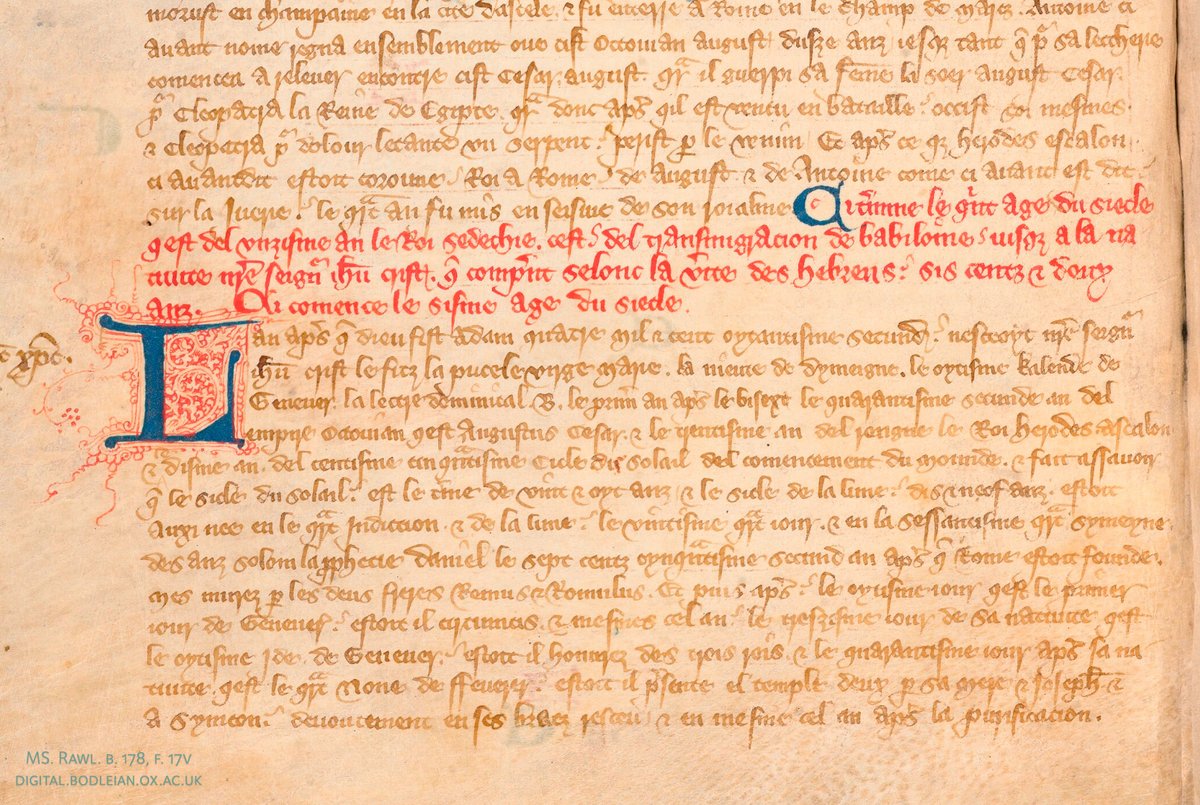 morust en champaine en la cite dastele. & fu enterre a Rome en le champ de marcz. Antoine ci
avant nome regna ensemblement ove cist Octovian august. dusze anz iesqz tant q̄ pr̄ sa leccherie
comencea a relever encontre cist Cesar august. qr̄ il guerpi sa feme la soer august Cesar
pr̄ Cleopatra la Reine de Egipte. qr̄ donc aps̄ qil est vencu en bataille: occist soi mesmes.
& Cleopatra pr̄ dolour letante un serpent: perist p le venim. Et aps̄ ce qz herodes escalon
ci avantdit estoit coroune: Roi a Rome: de august & de Antoine come ci avant est dit.
sur la Iuerie: le qr̄t an fu mis en seisine de son roialme Ci t'mine le qi'nt age du siecle
qest del unzisme an le Roi Sedechie. cest: del transmigracion de babiloine: iusqz a la na
tiuite nr̄e seignr̄ ih̄u crist. q̄ comp'nt selonc la v'ite des hebreus: sis centz & douz
anz. Ci comence le sisme age du siecle.
Lan aps̄ q̄ dieu fist adam quatre mil & cent oytantisme secund: nescoyt nr̄e seignr̄
ih̄u crist le fitz la pucele virge marie. la nieute de dymeigne. le oytisme kalende de
Genever. la lettre dominical. B. le prim an aps̄ le bisext le quarantisme secunde an del
empire Octovian qest Augustus Cesar. & le trentisme an del rengne le Roi herodes ascalon
& disme an. del centisme cinqr̄tisme Cicle del solail del comencement du mounde. & fait assavoir
q̄ le sicle du solail: est le t'me de vint & oyt anz. & le sicle de la lune: dis & neof anz. estoit
auxi nee en le qr̄t Indiccion. & de la lune: le vintisme qr̄t iour. & en la sessantisme qr̄t symeyne
des anz solom la pphecie daniel le sept centz cynqr̄tisme secund an aps̄ q̄ Rome estoit founde.
mes murez p les deus freres Remus & Romulus. Et puis aps̄: le oytisme iour qest le primer
iour de Genever: estoit il circumcis. & mesmes cel an: le treszisme iour de sa natiuite qest
le oytisme Ide. de Genever: estoit il honurez des trois rois. & le quarantisme iour aps̄ sa na
tiuite. qest le qr̄t None de ffeverer: estoit il p'sente el temple deux p sa mere & Ioseph. &
a Symeon: devoutement en ses bracz resceu: & en mesme cel an aps̄ la purificacion.
MS. RAWL. B. 178, F. 17V
DIGITAL.BODLEIAN.OX.AC.UK